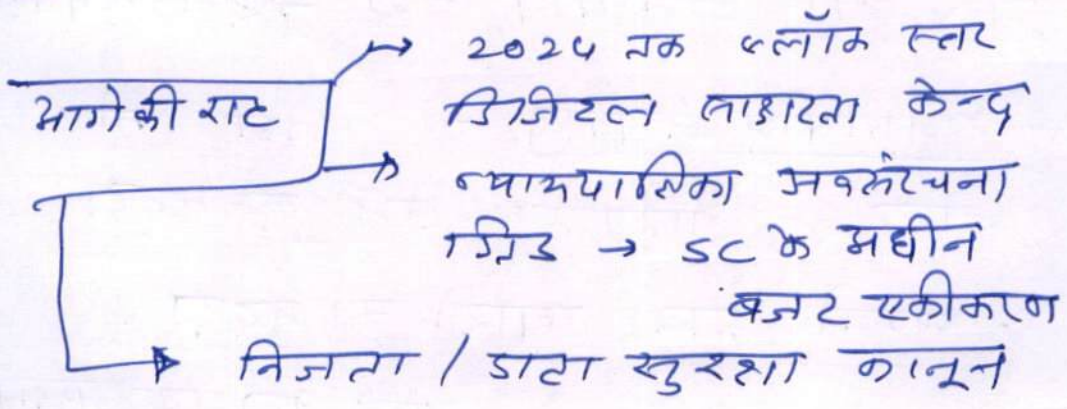 2024 तक ब्लॉक स्तर
आगे की राह
डिजिटल साक्षरता केन्द्र
न्यायपालिका अवसंरचना
ग्रिड → SC के अधीन
बजट एकीकरण
निजता / डाटा सुरक्षा कानून